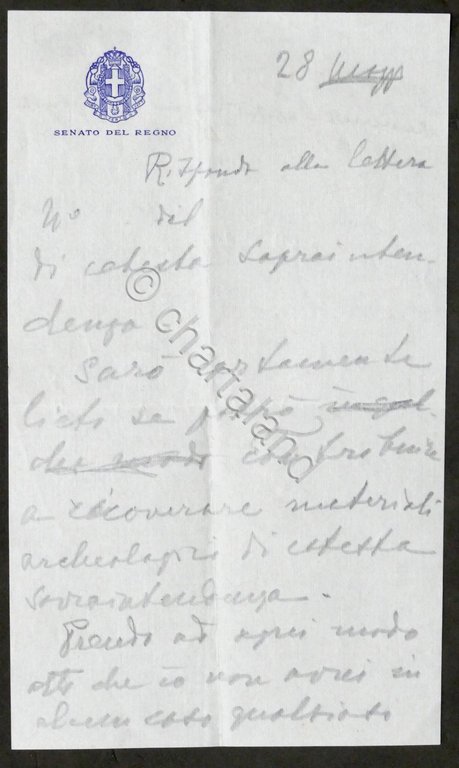 28 Magg
SENATO DEL REGNO
Rispondo alla lettera
N° del
di cotesta Soprainten-
denza
Sarò certamente
lieto se potrò in qual-
che modo contribuire
a ricoverare materiali
archeologici di cotesta
Sovraintendenza.
Prendo ad ogni modo
atto che io non avrei in
alcun caso qualsiasi
© chartaland